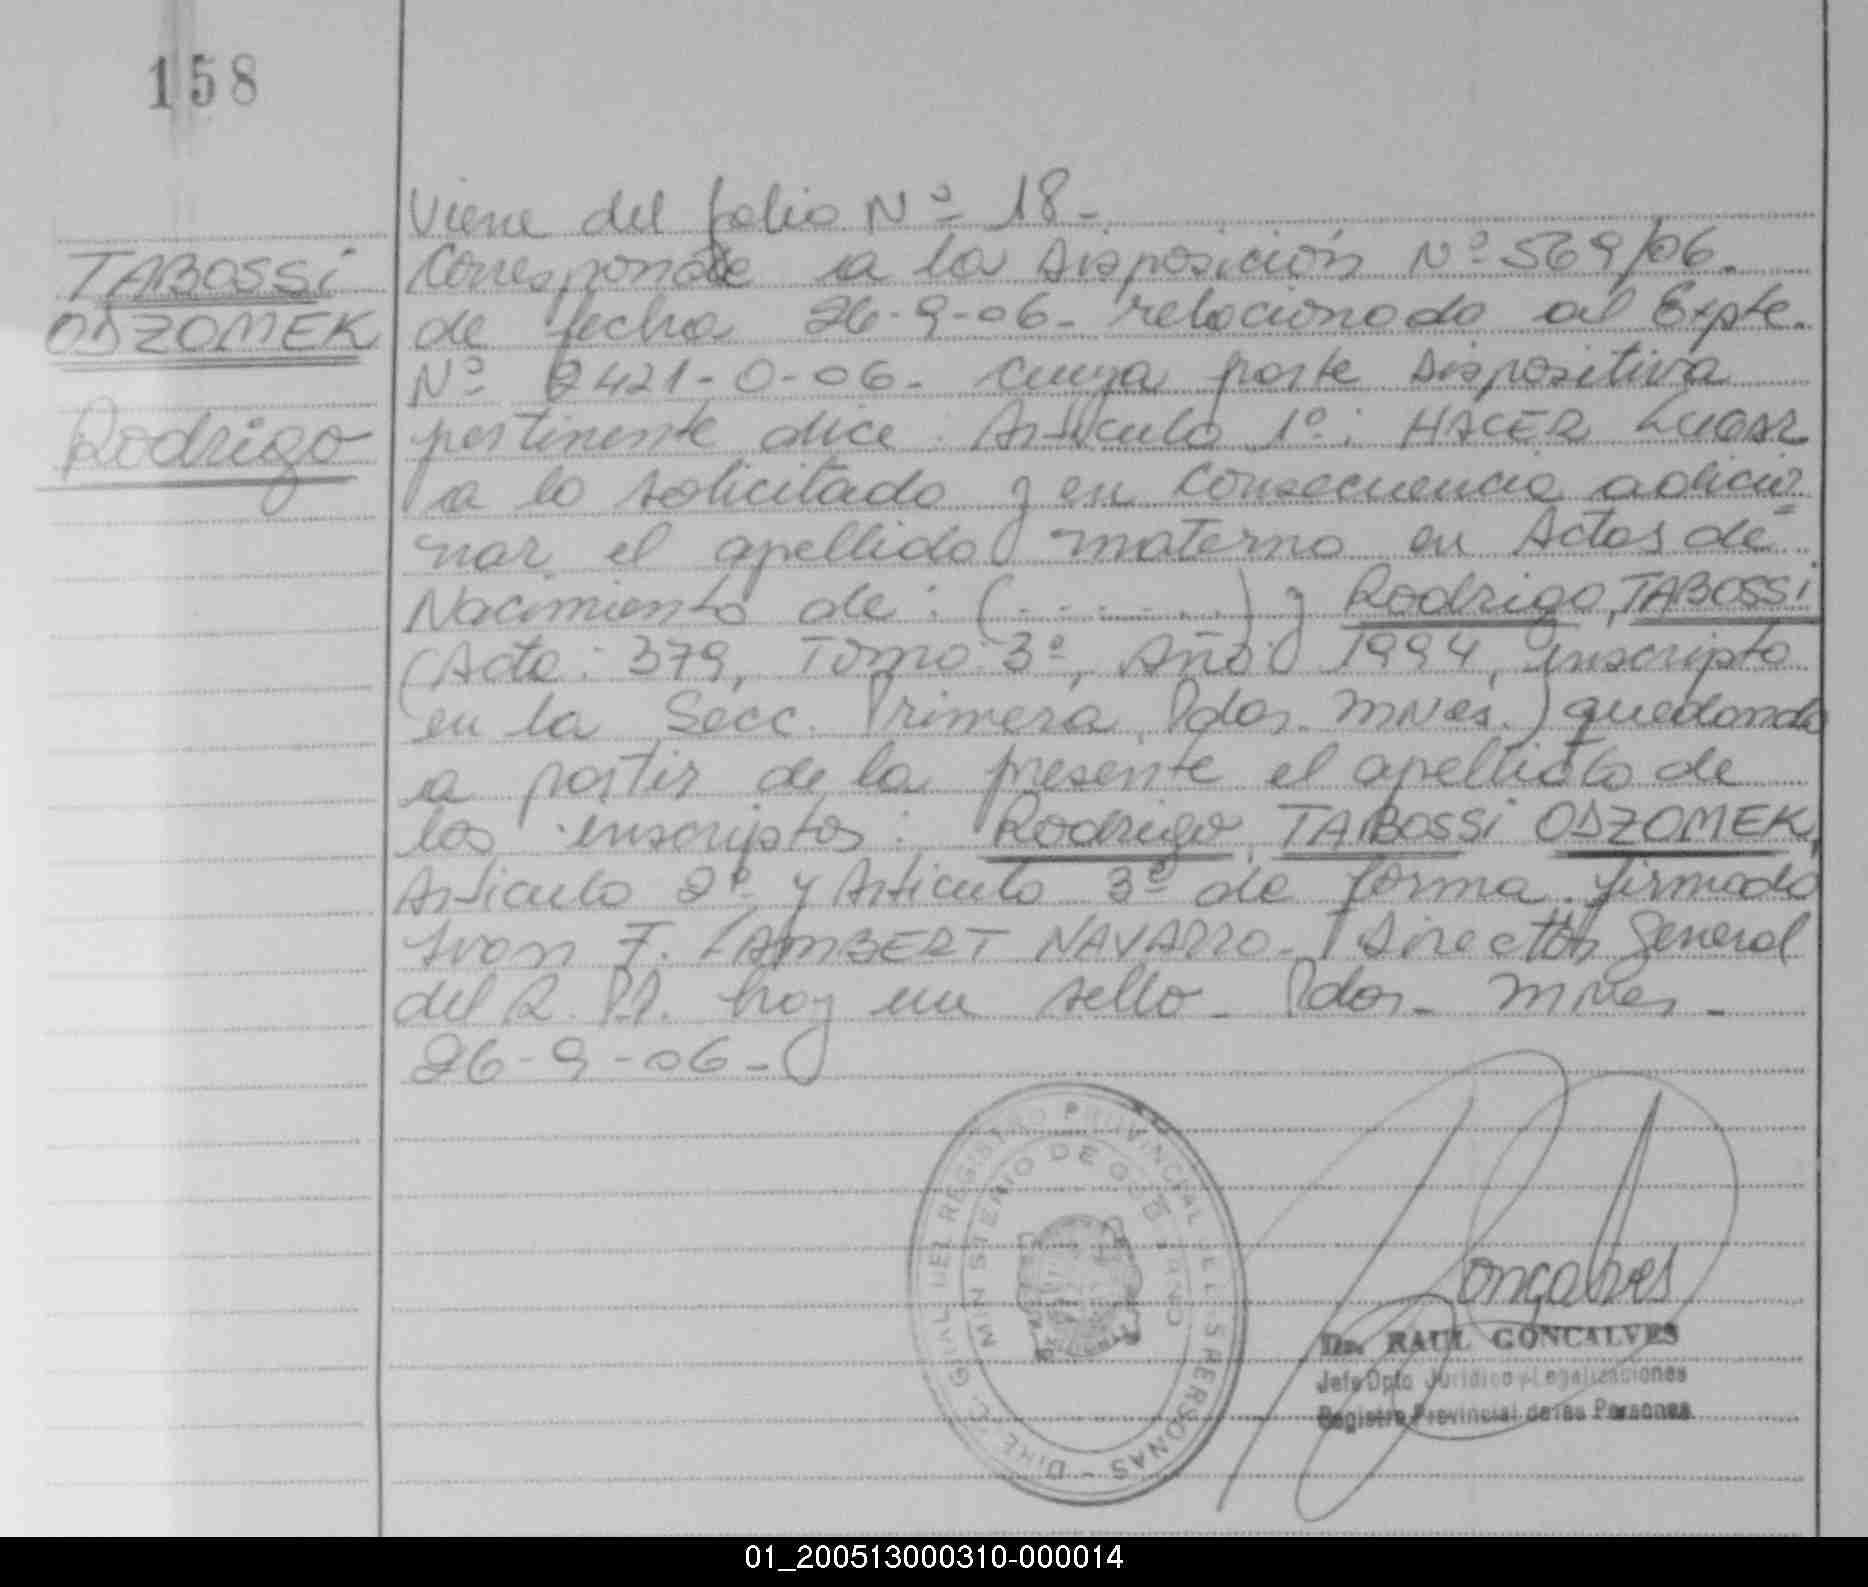 158
TABOSSi
ODZOMEK
Rodrigo
Viene del folio Nº 18-
Corresponde a la Disposición Nº 569/06.
de fecha 26-9-06- relacionado al Expte.
Nº 2421-0-06- cuya parte dispositiva
pertinente dice: Artículo 1º: HACER LUGAR
a lo solicitado y en consecuencia adicio=
nar el apellido materno en Actas de
Nacimiento de: (.........) y Rodrigo, TABOSSi
(Acta: 379, Tomo: 3º, Año: 1994, inscripto
en la Secc. Primera, Pdas. Mnes.) quedando
a partir de la presente el apellido de
los inscriptos: Rodrigo, TABOSSi ODZOMEK,
Artículo 2º y Artículo 3º de forma. firmado
Ivan F. LAMBERT NAVARRO- Director General
del R.P.P. hay un sello- Pdas- Mnes-
26-9-06-
DIREC. GRAL DEL REGISTRO PROVINCIAL DE LAS PERSONAS -
MINISTERIO DE GOBIERNO
MISIONES
Goncalves
Dr. RAUL GONCALVES
Jefe Dpto Jurídico y Legalizaciones
Registro Provincial de las Personas
01_200513000310-000014